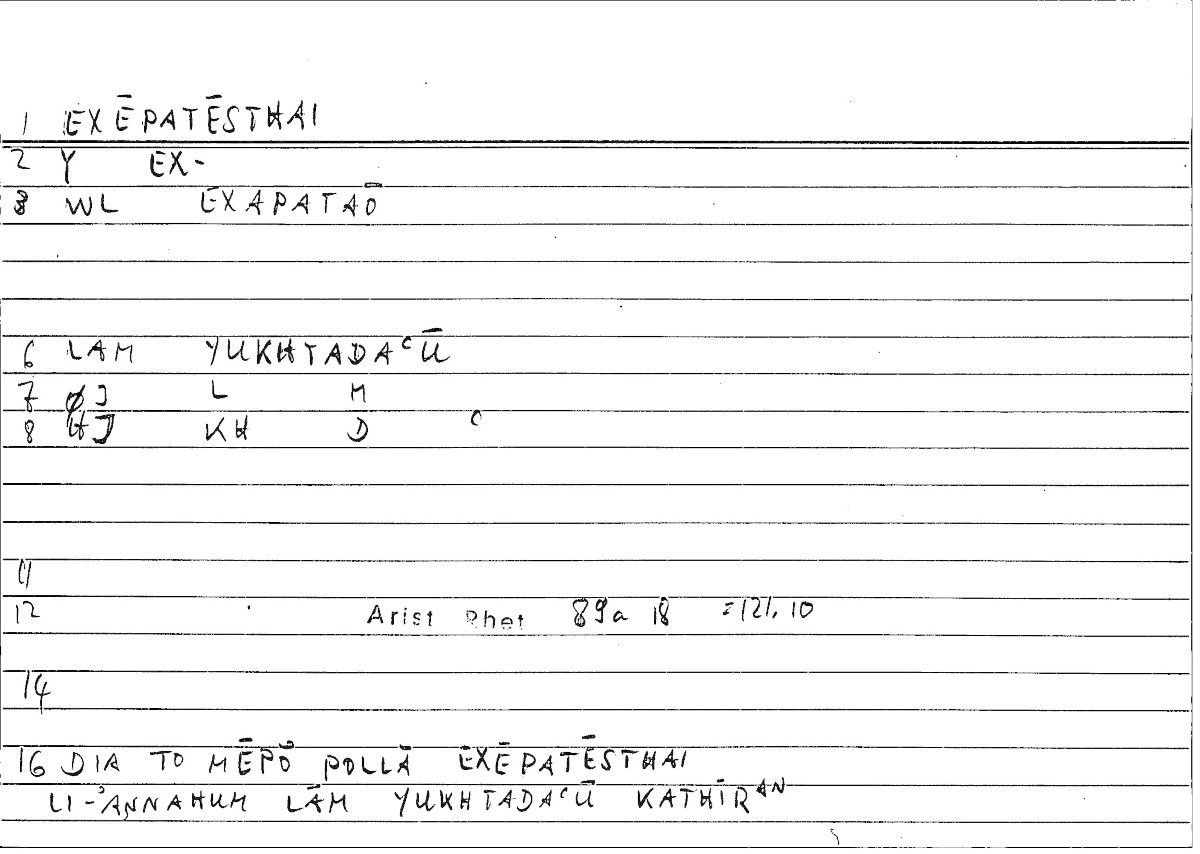 1 EXĒPATĒSTHAI
2 Y EX-
3 WL EXAPATAŌ
6 LAM YUKHTADAʿŪ
7 ØJ L M
8 HJ KH D ʿ
11
12 Arist Rhet 89a 18 =121,10
14
16 DIA TO MĒPŌ POLLĀ EXĒPATĒSTHAI
LI-ʾANNAHUM LĀM YUKHTADAʿŪ KATHĪRᴬᴺ